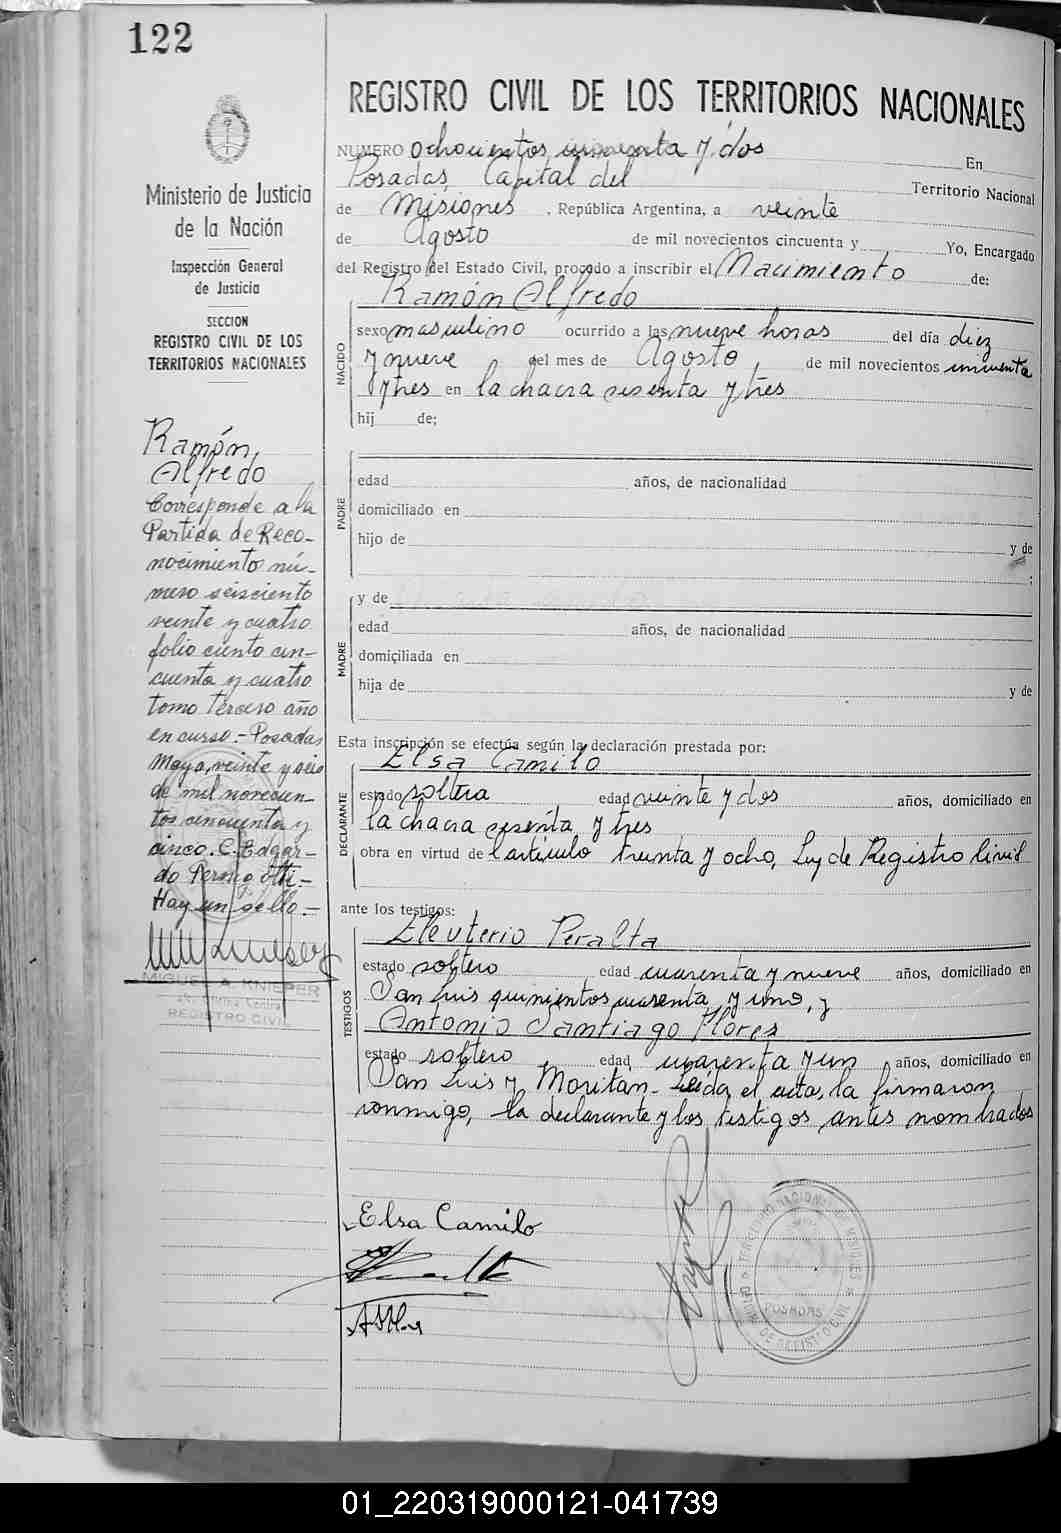 122
Ministerio de Justicia
de la Nación
Inspección General
de Justicia
SECCION
REGISTRO CIVIL DE LOS
TERRITORIOS NACIONALES
Ramón
Alfredo
Corresponde a la
Partida de Reco-
nocimiento nú-
mero seisciento
veinte y cuatro
folio ciento cin-
cuenta y cuatro
tomo tercero año
en curso.- Posadas
Mayo, veinte y seis
de mil novecien-
tos cincuenta y
cinco. C. Edgar-
do
Hay un sello.-
MIGUEL A. KNIEPER
REGISTRO CIVIL
REGISTRO CIVIL DE LOS TERRITORIOS NACIONALES
NUMERO ochocientos cincuenta y dos En
Posadas, Capital del Territorio Nacional
de Misiones, República Argentina, a veinte
de Agosto de mil novecientos cincuenta y Yo, Encargado
del Registro del Estado Civil, procedo a inscribir el Nacimiento de:
Ramón Alfredo
NACIDO
sexo masculino ocurrido a las nueve horas del día diez
y nueve del mes de Agosto de mil novecientos cincuenta
y tres en la chacra sesenta y tres
hij de;
PADRE
edad años, de nacionalidad
domiciliado en
hijo de y de
;
MADRE
y de
edad años, de nacionalidad
domiciliada en
hija de y de
Esta inscripción se efectúa según la declaración prestada por:
DECLARANTE
Elsa Camilo
estado soltera edad veinte y dos años, domiciliado en
la chacra sesenta y tres
obra en virtud de l'articulo treinta y ocho, Ley de Registro Civil
ante los testigos:
TESTIGOS
Eleuterio Peralta
estado soltero edad cuarenta y nueve años, domiciliado en
San Luis quinientos cuarenta y uno, y
Antonio Santiago Flores
estado soltero edad cuarenta y un años, domiciliado en
San Luis y Moritán- Leida el acta, la firmaron
conmigo, la declarante y los testigos antes nombrados
Elsa Camilo
POSADAS
01_220319000121-041739